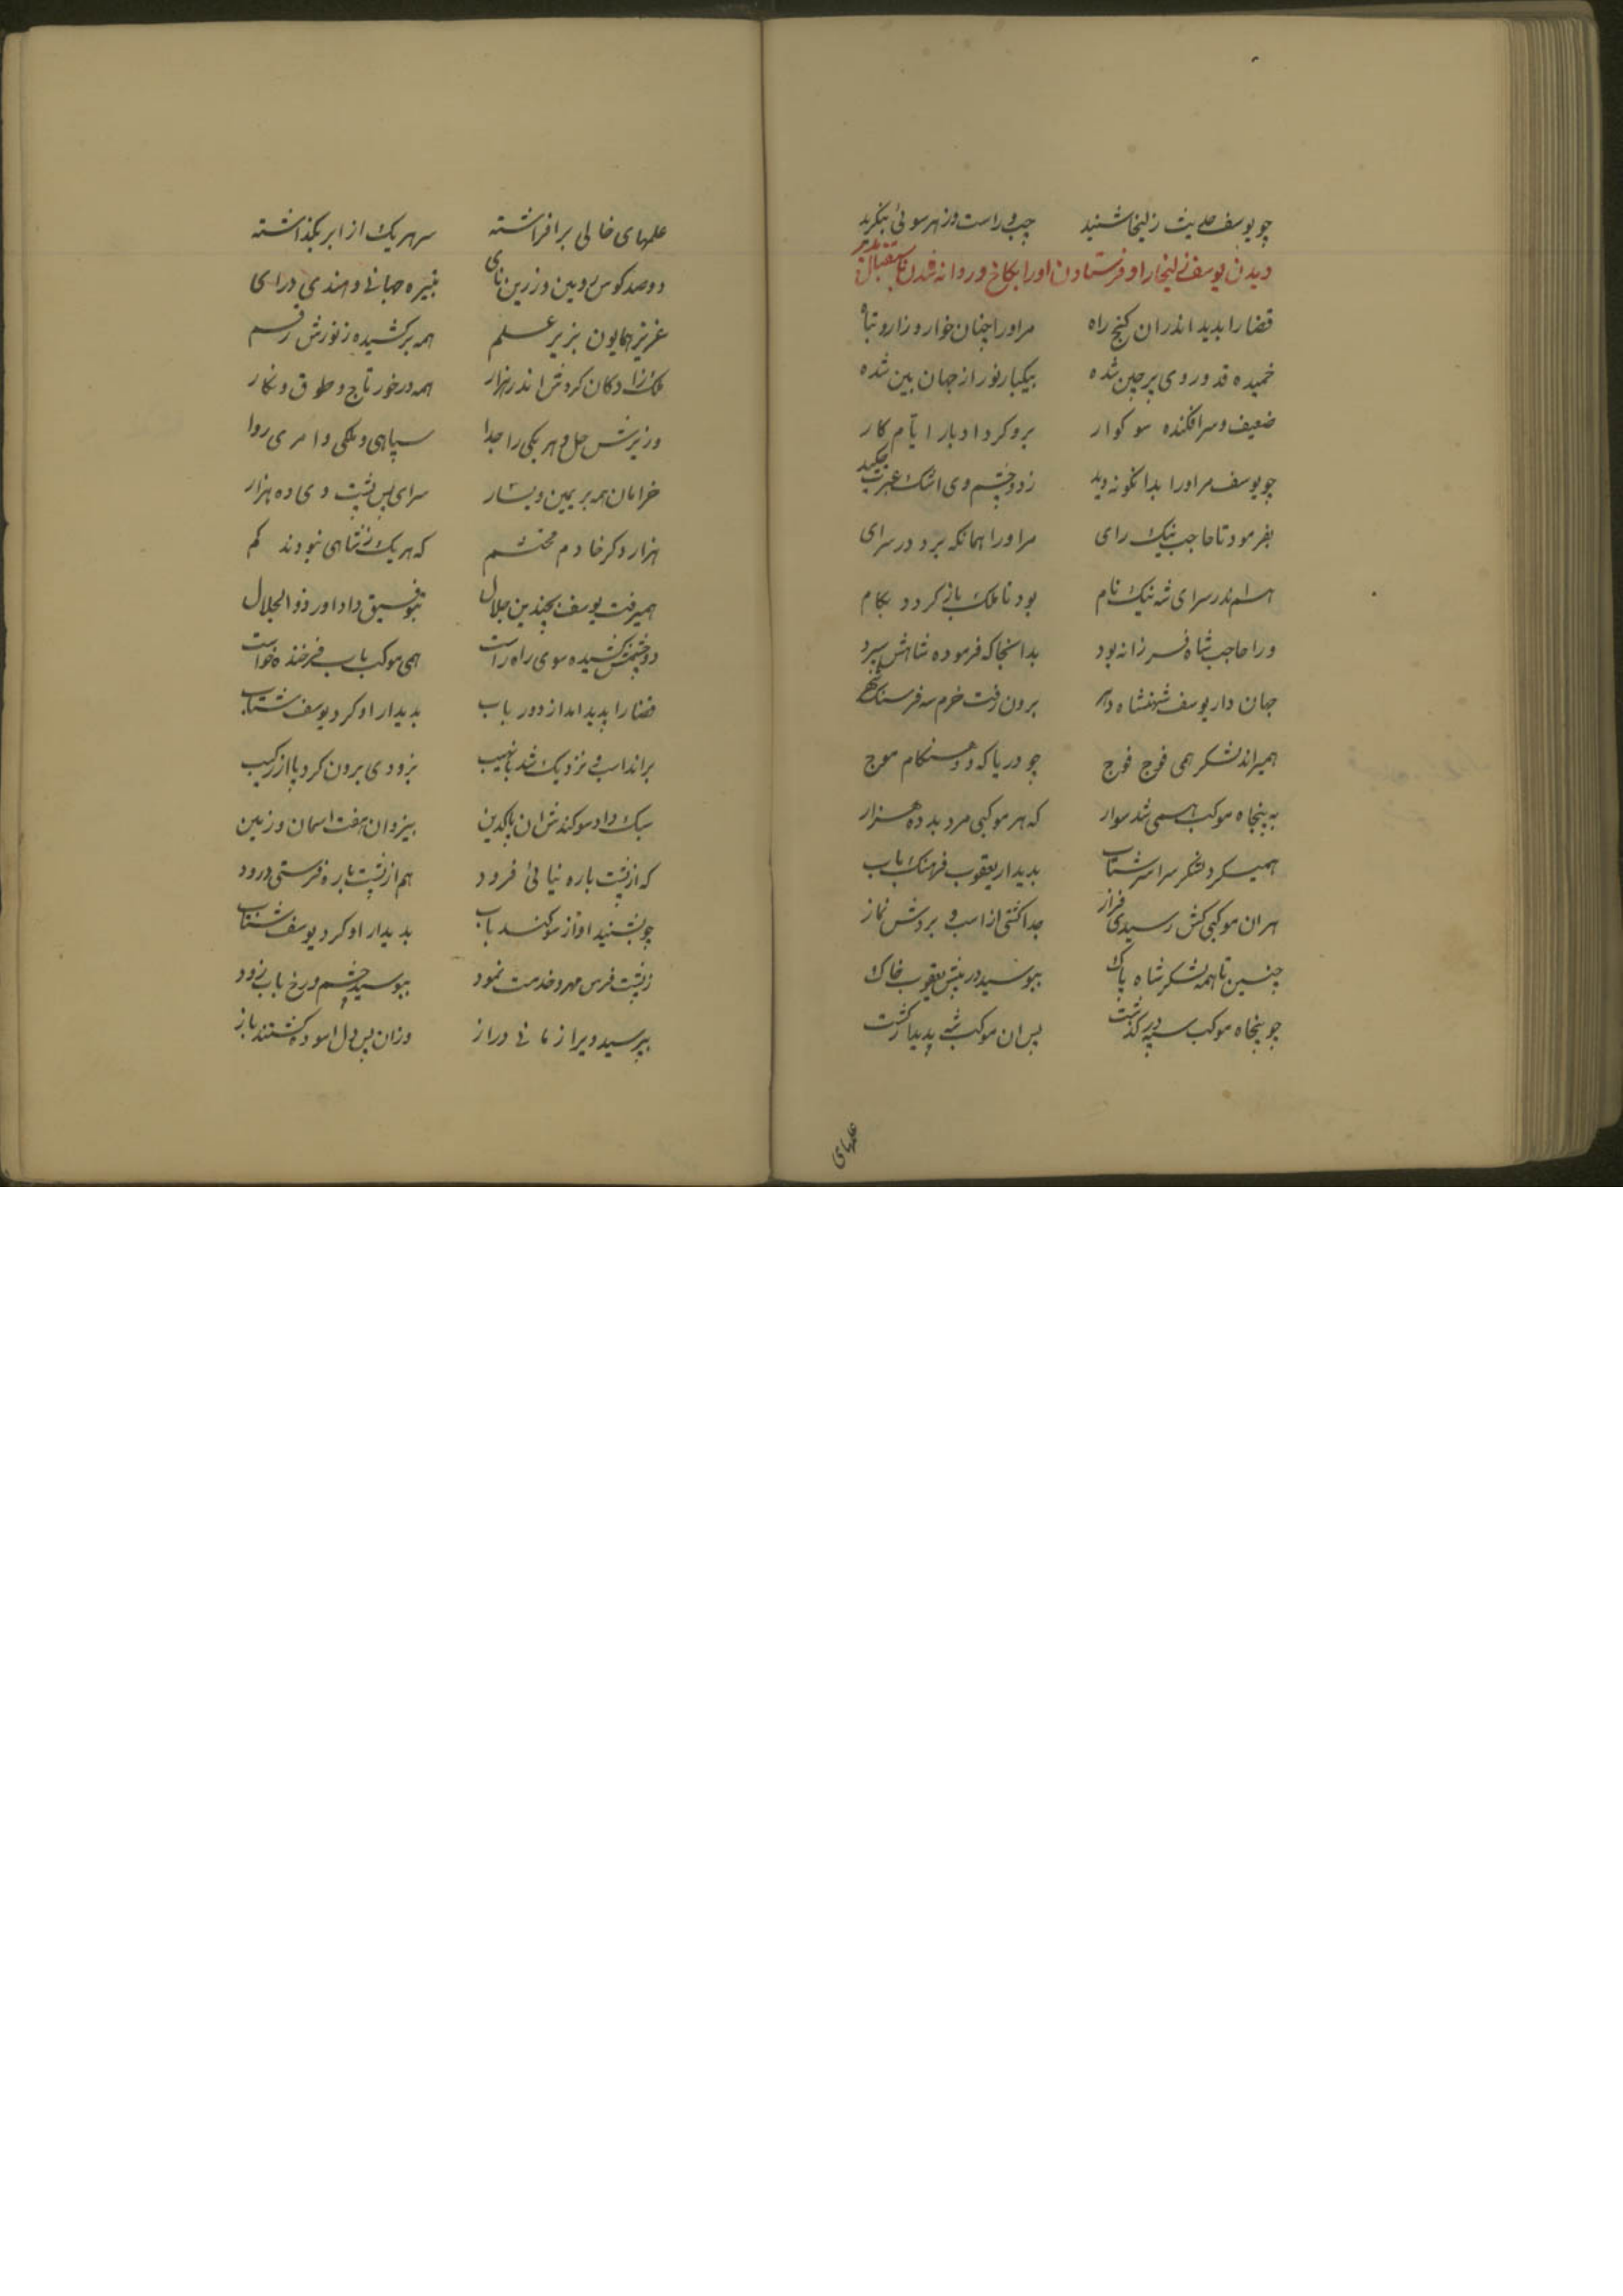 چو یوسف حدیث زلیخا شنید چپ و راست وز هر سوئی بنگرید
دیدن یوسف زلیخا را و فرستادن او را بکاخ و روانه شدن باستقبال پدر
قضا را بدید اندران کنج راه مر او را چنان خوار و زار و تباه
خمیده قد و روی پرچین شده بیکبار نور از جهان بین شده
ضعیف و سرافکنده سوکوار برو کرد ادبار ایام کار
چو یوسف مر او را بدانکونه دید ز دو چشم وی اشک عبرت چکید
بفرمود تا حاجب نیک رای مر او را همانکه برد در سرای
هم اندر سرای شه نیک نام بود تا ملک باز کردد بکام
ورا حاجب شاه فرزانه بود بدانجا که فرموده شاهش سپرد
جهان دار یوسف شهنشاه برون رفت خرم سه فرسنک
همیراند لشکر همی فوج فوج چو دریا که هنکام موج
به پنجاه موکب همی شد سوار که هر موکبی مرد بد ده هزار
همیکرد لشکر سراسر شتاب بدیدار یعقوب فرهنک یاب
هران موکبی کش رسیدی فراز جدا کشتی از اسب و بردش نماز
چنین تا همه لشکر شاه پاک ببوسید در پیش یعقوب خاک
چو پنجاه موکب سپه در کذشت پس ان موکب شه پدیدار کشت
علمهای
علمهای خالی برافراشته سر هر یک از ابر بکذاشته
دو صد کوس رویین و زرین نای تبیره جهانی و هندی درای
عزیز همایون بزیر علم همه برکشیده ز نورش رقم
ملک زادکان کردش اندر هزار همه در خور تاج و طوق و نکار
وزیرش چل و هر یکی را جدا سپاهی و ملکی و امری روا
خرامان همه بر یمین و یسار سرای پس پشت وی ده هزار
هزار دکر خادم محتشم که هر یک ز شاهی نبودند کم
همیرفت یوسف بچندین جلال بتوفیق دادآور ذوالجلال
دو چشمش کشیده سوی راه راست همی موکب باب فرخنده خواست
قضا را پدید امد از دور باب بدیدار او کرد یوسف شتاب
براند اسب و نزدیک شد با نهیب بزودی برون کرد پا از رکیب
سبک داد سوکندش ان پاکدین بیزدان هفت اسمان و زمین
که از پشت باره نیائی فرود هم از پشت باره فرستی درود
چو بشنید اواز سوکند باب بدیدار او کرد یوسف شتاب
ز پشت فرس مهر و خدمت نمود ببوسید چشم و رخ باب زود
بپرسید ویرا زمانی دراز وزان پس دل اسوده کشتند باز